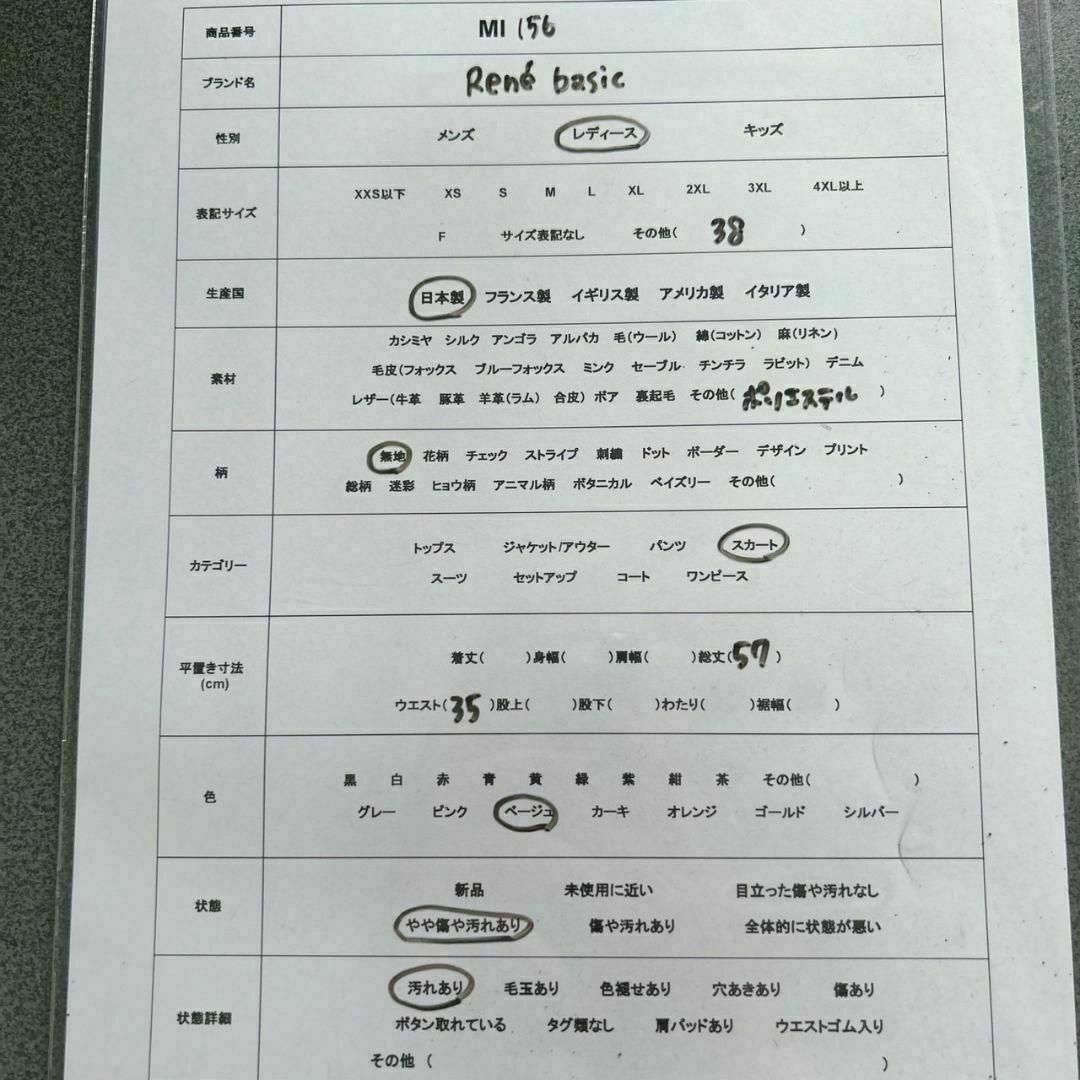 商品番号 MI 156
ブランド名 René basic
性別 メンズ レディース キッズ
XXS以下 XS S M L XL 2XL 3XL 4XL以上
表記サイズ
F サイズ表記なし その他( 38 )
生産国 日本製 フランス製 イギリス製 アメリカ製 イタリア製
カシミヤ シルク アンゴラ アルパカ 毛(ウール) 綿(コットン) 麻(リネン)
毛皮(フォックス ブルーフォックス ミンク セーブル チンチラ ラビット) デニム
素材
レザー(牛革 豚革 羊革(ラム) 合皮) ボア 裏起毛 その他( ポリエステル )
無地 花柄 チェック ストライプ 刺繍 ドット ボーダー デザイン プリント
柄
総柄 迷彩 ヒョウ柄 アニマル柄 ボタニカル ペイズリー その他( )
トップス ジャケット/アウター パンツ スカート
カテゴリー
スーツ セットアップ コート ワンピース
着丈( )身幅( )肩幅( )総丈( 57 )
平置き寸法
(cm)
ウエスト( 35 )股上( )股下( )わたり( )裾幅( )
黒 白 赤 青 黄 緑 紫 紺 茶 その他( )
色
グレー ピンク ベージュ カーキ オレンジ ゴールド シルバー
新品 未使用に近い 目立った傷や汚れなし
状態
やや傷や汚れあり 傷や汚れあり 全体的に状態が悪い
汚れあり 毛玉あり 色褪せあり 穴あきあり 傷あり
状態詳細
ボタン取れている タグ類なし 肩パッドあり ウエストゴム入り
その他 ( )